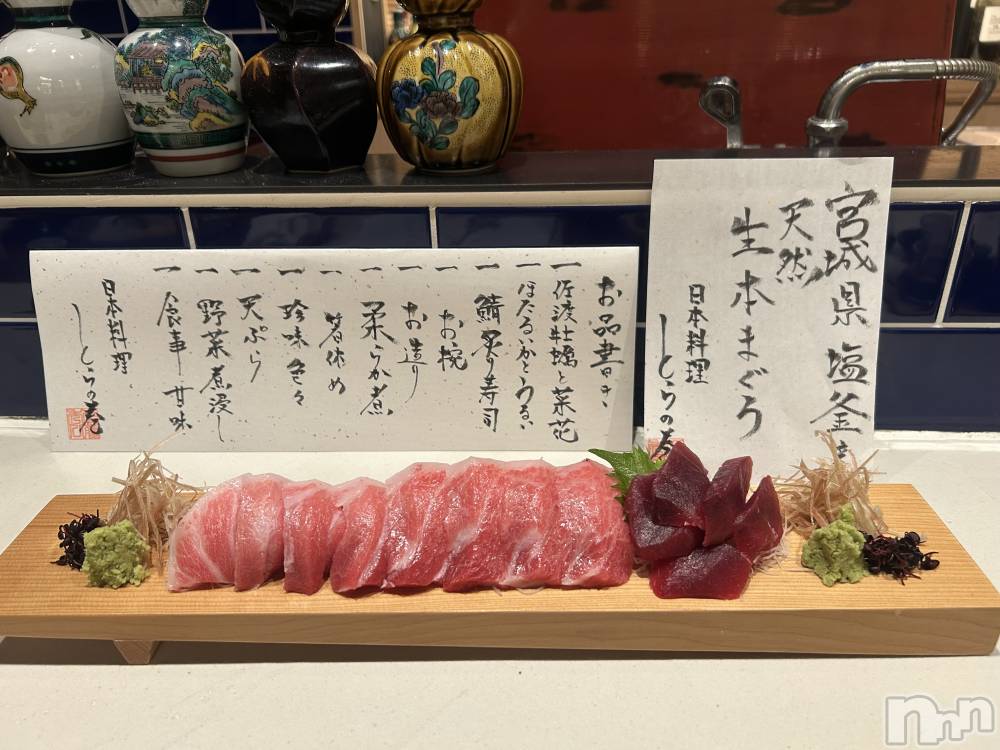 お品書き
一 佐渡牡蠣と菜花
一 ほたるいかとうるい
一 鯖炙り寿司
一 お椀
一 お造り
一 柔らか煮
一 箸休め
一 珍味色々
一 天ぷら
一 野菜煮浸し
一 食事 甘味
日本料理
しとらの巻
宮城県 塩釜
天然
生本まぐろ
日本料理
しとらの巻
nnn